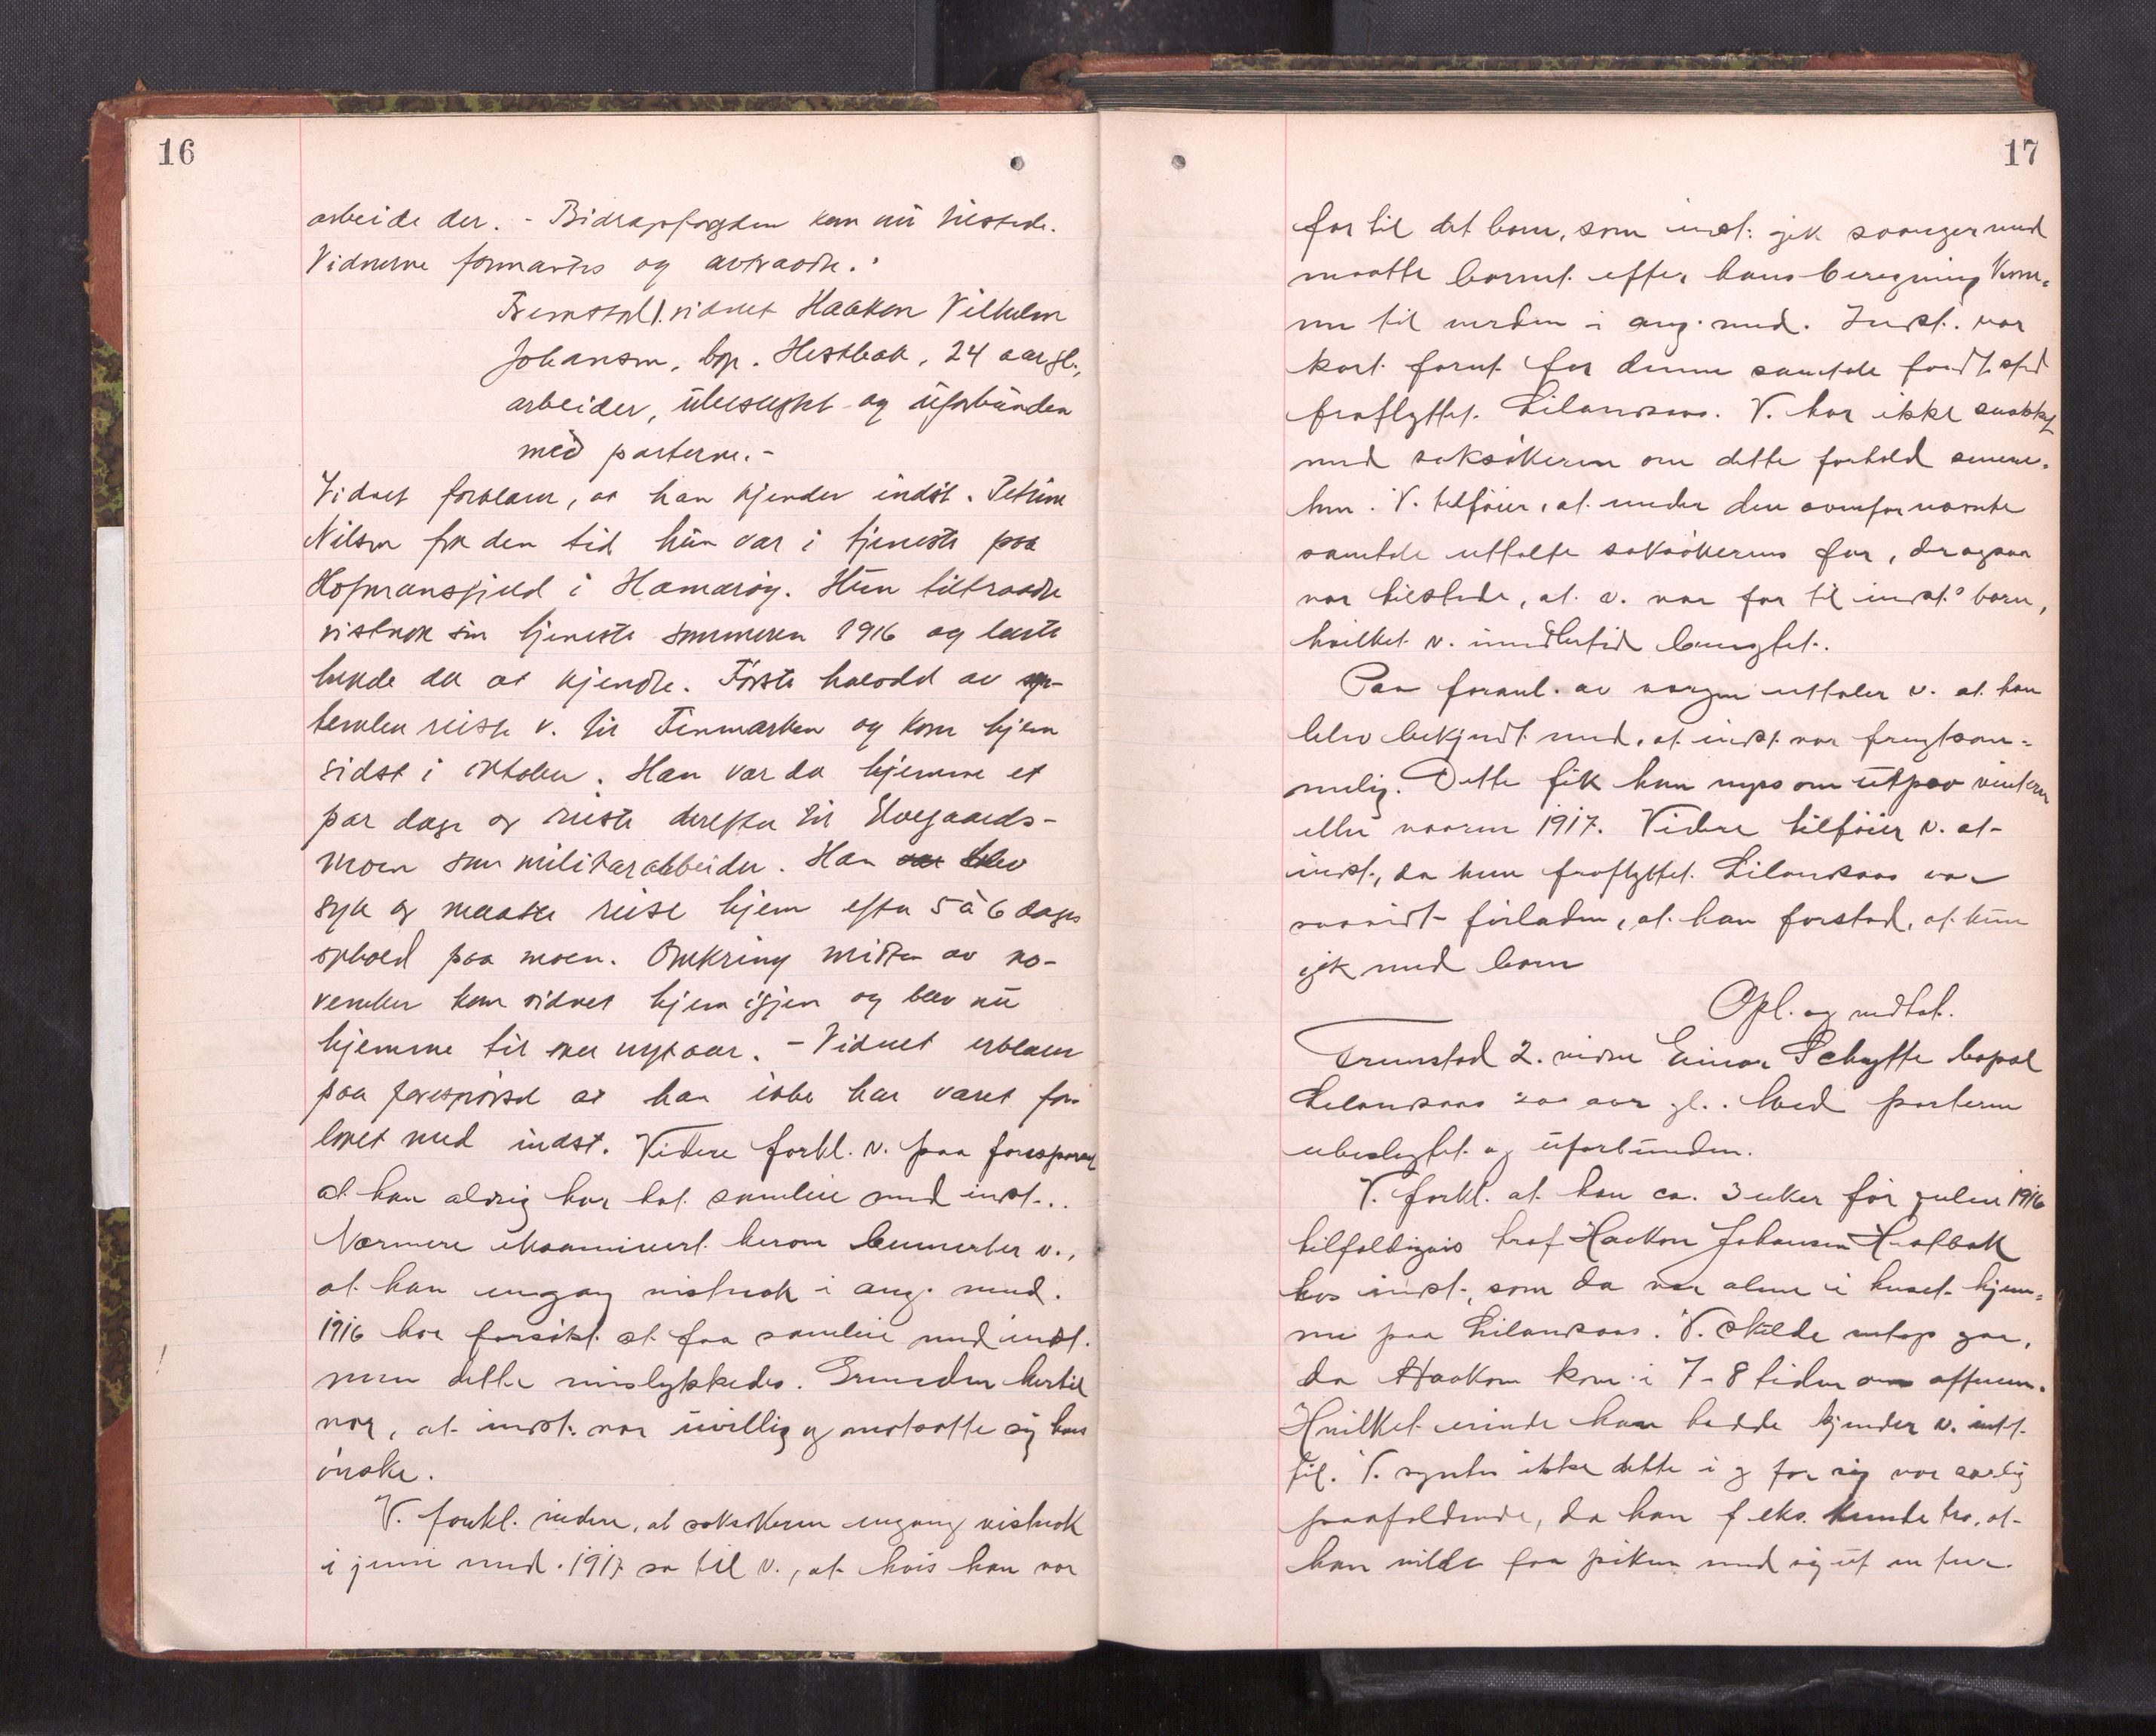 16
arbeide der. - Bidragsfogden kom nu tilstede.
Vidnerne formantes og avtraadte.
Fremstod 1. vidnet Haakon Vilhelm
Johansen, bop. Hestbak, 24 aar gl.,
arbeider, ubeslegtet og uforbunden
med parterne. -
Vidnet forklarer, at han kjender indst. Petrine
Nilsen fra den tid hun var i tjeneste paa
Hofmansfjeld i Hamarøy. Hun tiltraadte
vistnok sin tjeneste sommeren 1916 og lærte
hende da at kjende. Første halvdel av sep-
tember reiste v. til Finmarken og kom hjem
sidst i oktober. Han var da hjemme et
par dage og reiste derefter til Elvegaards-
moen som militærarbeider. Han blev
syk og maatte reise hjem efter 5 à 6 dages
ophold paa moen. Omkring midten av no-
vember kom vidnet hjem igjen og blev nu
hjemme til over nytaar. - Vidnet erklærer
paa forespørsel at han ikke har været for-
lovet med indst. Videre forkl. v. paa forespørsel
at han aldrig har hat samleie med indst..
Nærmere eksaminert herom bemerker v.,
at han engang vistnok i aug. mnd.
1916 har forsøkt at faa samleie med indst.
men dette mislykkedes. Grunden hertil
var, at indst. var uvillig og motsatte sig hans
ønske.
V. forkl. videre, at saksøkeren engang vistnok
i juni mnd. 1917 sa til v., at hvis han var
17
far til det barn, som indst. gik svanger med
maatte barnet efter hans beregning kom-
me til verden i aug. mnd. Indst. var
kort forut for denne samtale fandt sted
fraflyttet Lilandsaas. V. har ikke snakket
med saksøkeren om dette forhold senere
hen. V. tilføier, at under den ovenfor nævnte
samtale uttalte saksøkerens far, der ogsaa
var tilstede, at v. var far til indst.s barn,
hvilket v. imidlertid benegtet.
Paa foranl. av uttaler v. at han
blev bekjendt med, at indst. var frugtsom-
melig. Dette fik han nyss om utpaa vinteren
eller vaaren 1917. Videre tilføier v. at
indst., da hun fraflyttet Lilandsaas var
saavidt førladen, at han forstod, at hun
gik med barn
Opl. og vedtat.
Fremstod 2. vidne Einar Schytte bopæl
Lilandsaas 20 aar gl.. Med parterne
ubeslegtet og uforbunden.
V. forkl. at han ca. 3 uker før julen 1916
tilfældigvis traf Haakon Johansen Hestbak
hos indst., som da var alene i huset hjem-
me paa Lilandsaas. V. skulde netop gaa,
da Haakon kom i 7-8 tiden om aftenen.
Hvilket erinde han hadde kjender v. intet
til. V. syntes ikke dette i og for sig var særlig
paafaldende, da han f. eks. kunde tro, at
han vilde faa piken med sig ut en tur.